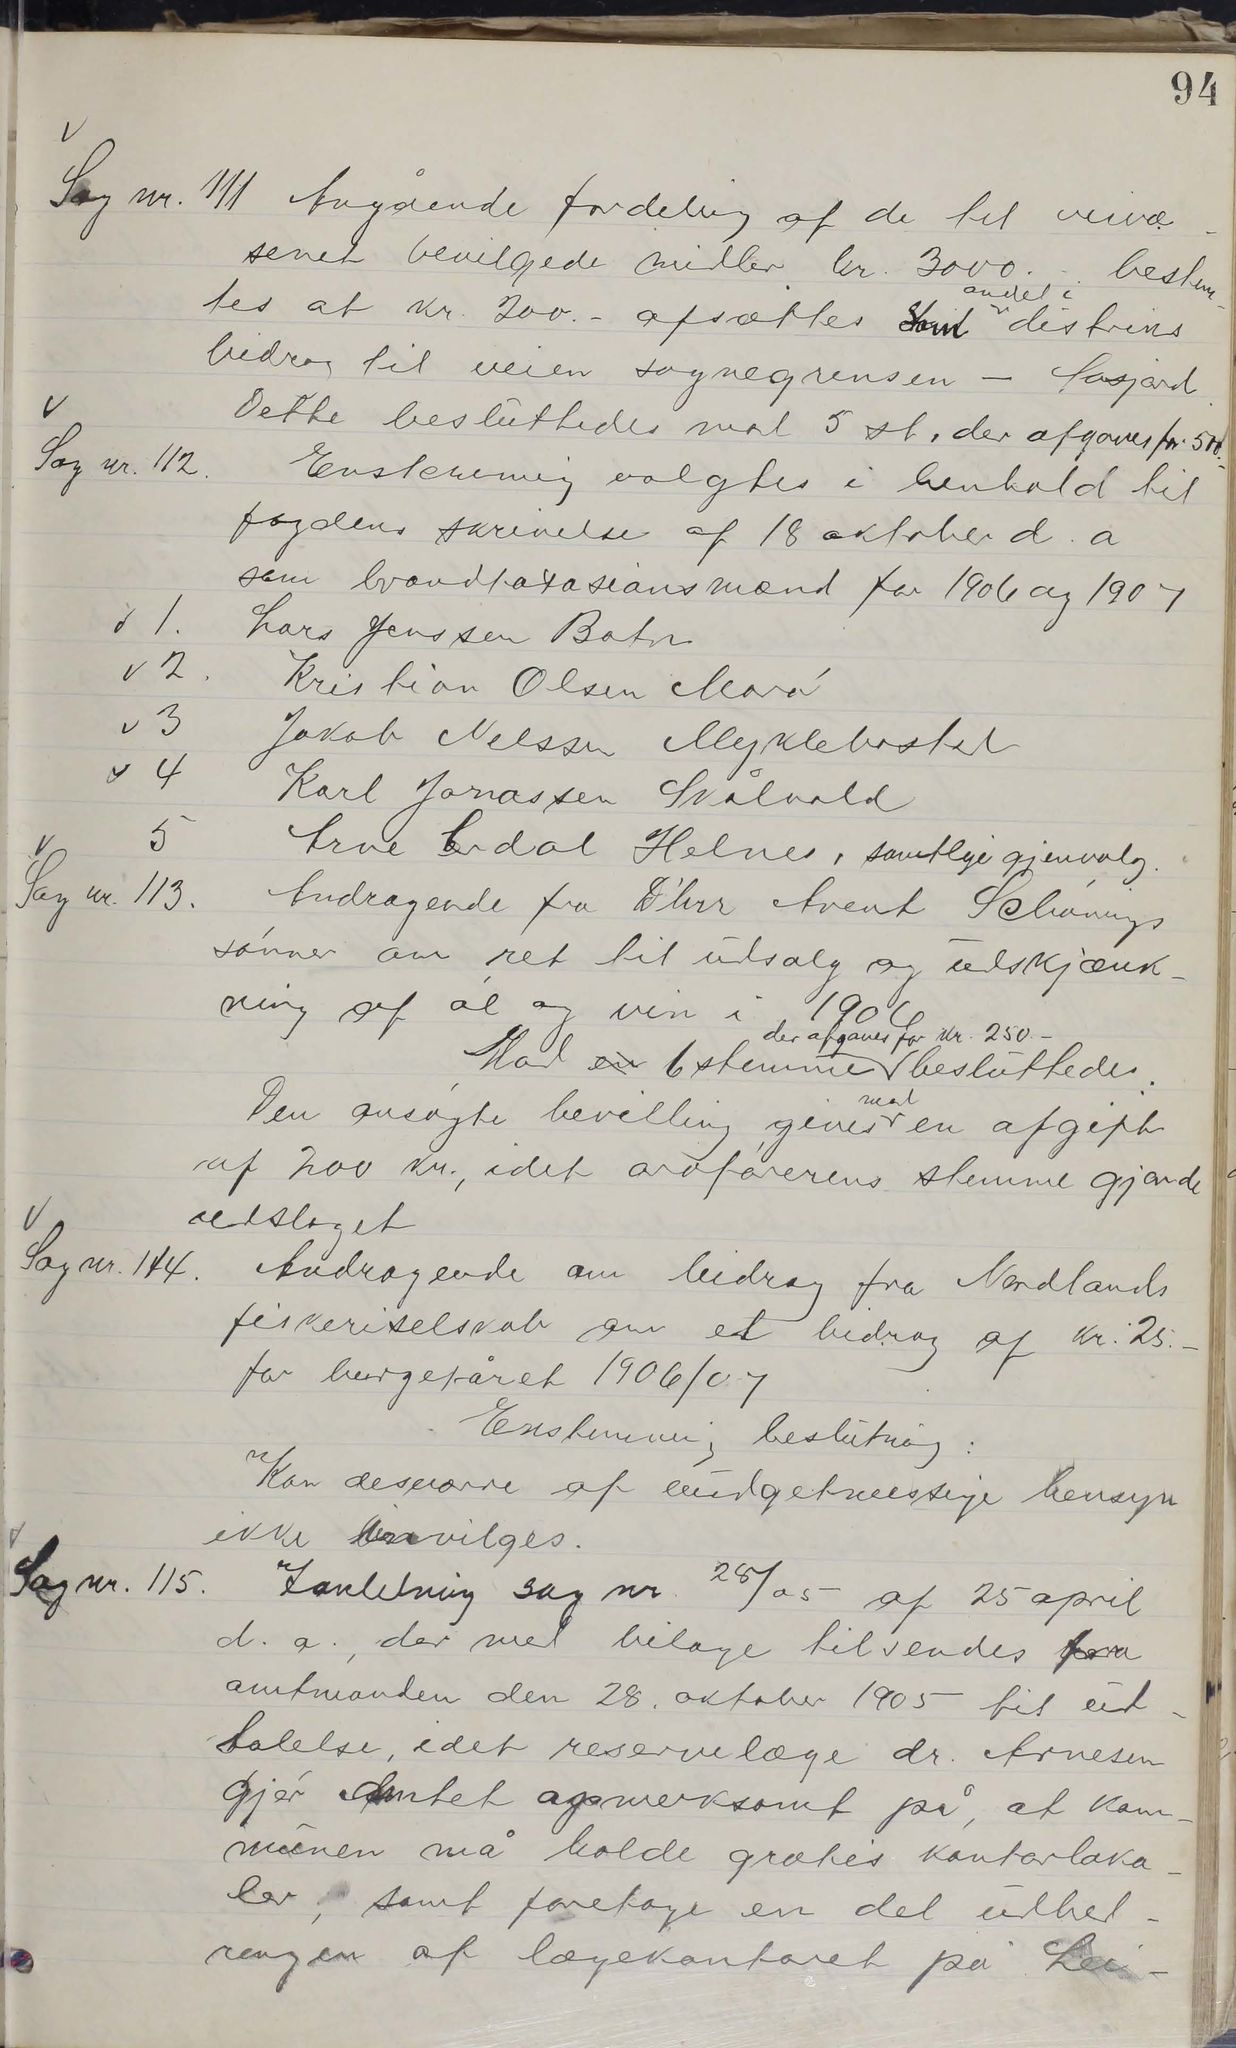 94
Sag nr. 111 Angående fordeling af de til veivæ-
senet bevilgede midler kr. 3000.- bestem-
tes at kr. 200.- afsættes som andel i distriks
bidrag til veien sognegrensen -
Dette besluttedes mod 5 st. der afgaves for 500.-
Sag nr. 112. Enstemmig valgtes i henhold til
fogdens skrivelse af 18 oktober d. a
som brandtaxasionsmænd for 1906 og 1907
v 1. Lars Jenssen Botn
v 2. Kristian Olsen Mørå
v 3 Jakob Nelssen Myklebostad
v 4 Karl Jonassen Skålvold
5 Arne Lerdal Helnes, samtlige gjenvalg.
Sag nr. 113. Andragende fra D'hrr Arent Schønings
sønner om ret til udsalg og udskjænk-
ning af øl og vin i 1906
der afgaves for kr. 250.-
Mod en 6 stemme besluttedes.
Den ansøgte bevilling gives mod en afgift
af 200 kr., idet ordførerens stemme gjorde
udslaget
Sag nr. 114. Andragende om bidrag fra Nordlands
fiskeriselskab om et bidrag af kr. 25.-
for burgetåret 1906/07
Enstemmig beslutning:
Kan desværre af budgetmessige hensyn
ikke invilges.
Sag nr. 115. Foreledning sag nr. 28/05 af 25 april
d. a., der med bilage tilsendes fra
amtmanden den 28. oktober 1905 til ud-
talelse, idet reservelæge dr. Arnesen
gjør Amtet opmerksomt på, at kom-
munen må holde gratis kontorloka-
ler, samt foretage en del udbed-
ringen af lægekontoret på Lei-